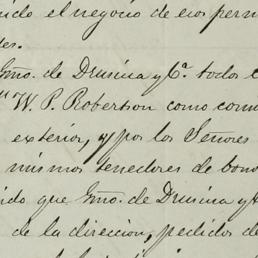 ido el negocio de esos perm
des.
Gmo. de Drusina y Ca. todos l
W. P. Robertson como comi
exterior, y por los Señores
mismos tenedores de bono
ido que Gmo. de Drusina y
de la direccion, pedidos de